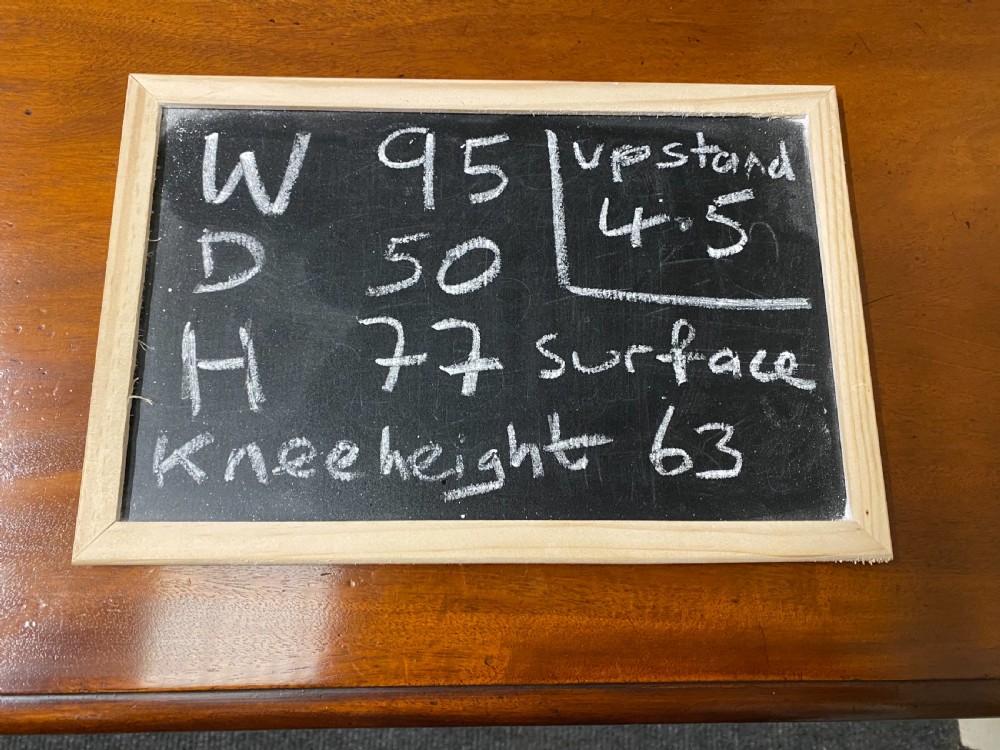 W 95
upstand
4.5
D 50
H 77 surface
Kneeheight 63